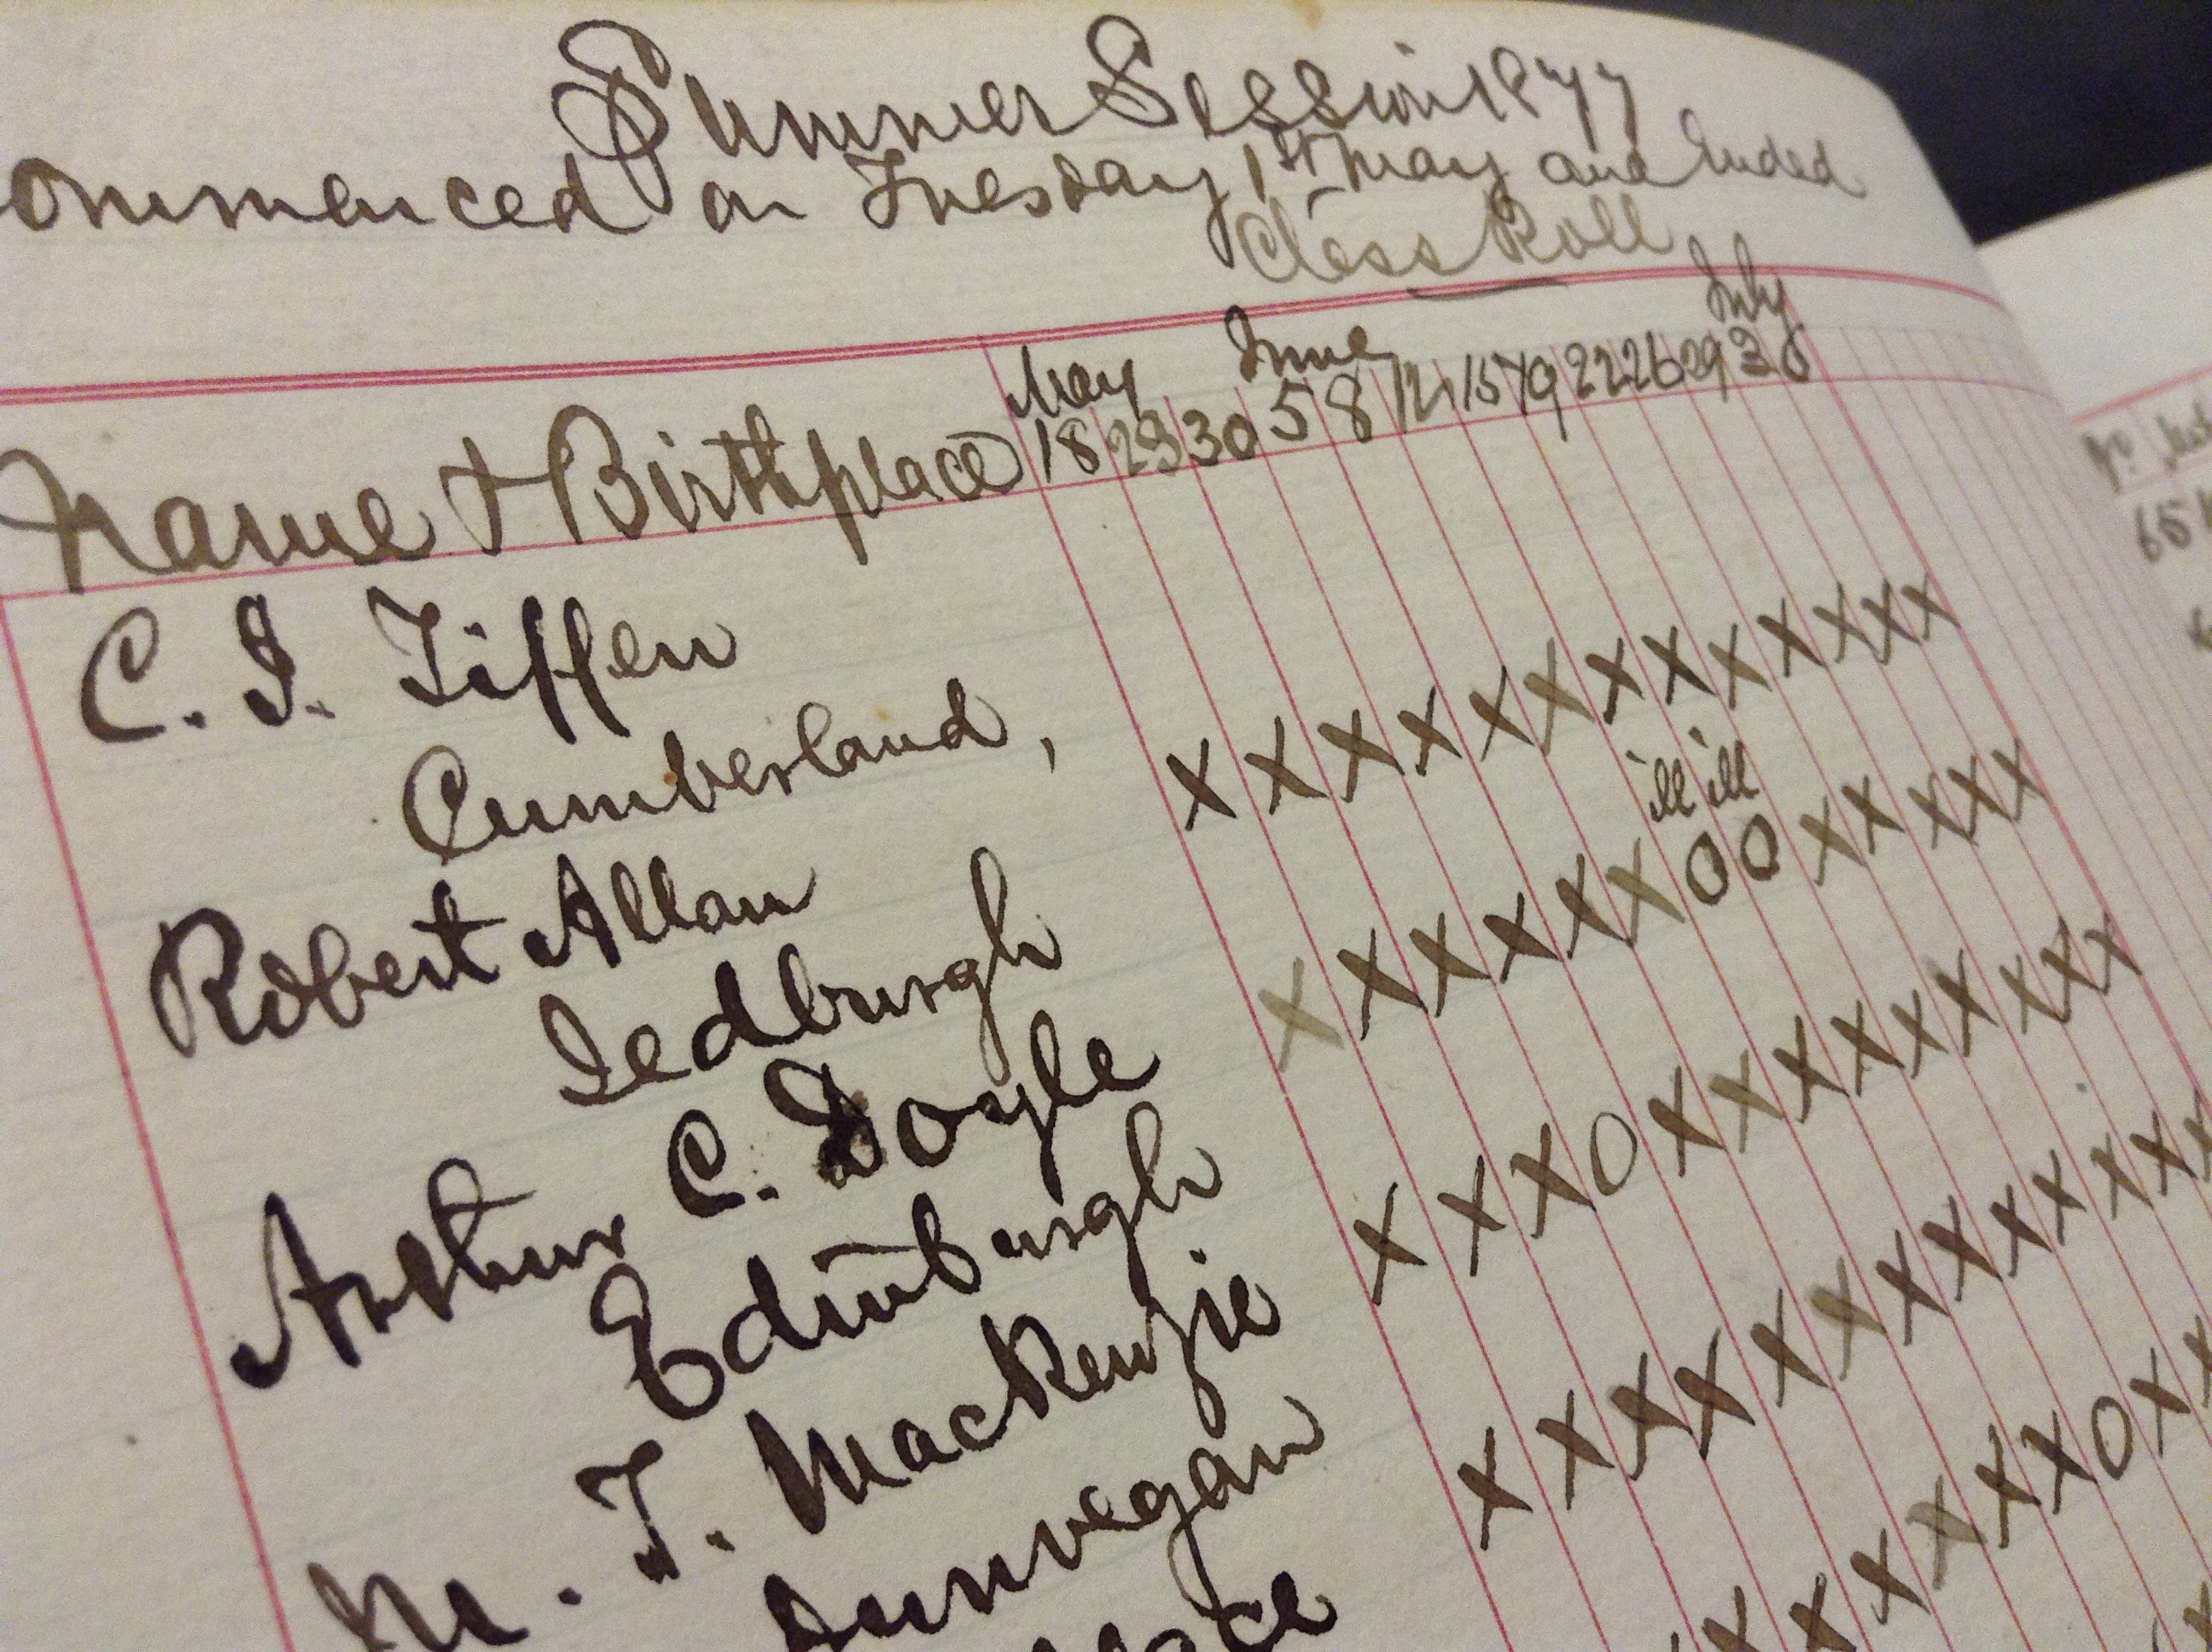 Summer Session 1877
ommenced on Tuesday 1st May and Ended
Class Roll
May June July
Name & Birthplace 18 29 30 5 8 12 15 19 22 26 29 3 6
C. I. Tiffen
Cumberland,
x x x x x x x x x x x x x
ill ill
Robert Allan
Jedburgh
x x x x x x 0 0 x x x x x
Arthur C. Doyle
Edinburgh
x x x 0 x x x x x x x x x
M. T. MacKenzie
Dunvegan